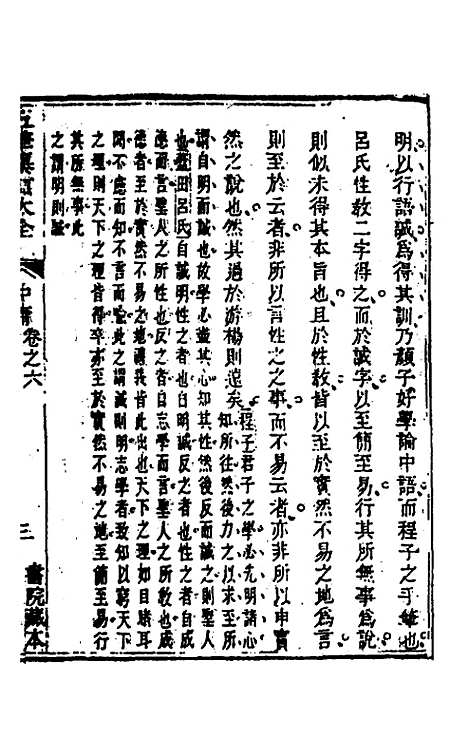 明以行語誠爲得其訓乃顏子好學論中語而程子之手筆也
呂氏性敎二字得之而於誠字以至簡至易行其所無事爲說
則似未得其本旨也且於性敎皆以至於實然不易之地爲言
則至於云者非所以言性之事而不易云者亦非所以申實
然之說也然其過於游楊則遠矣程子君子之學必先明諸心
知所往然後力之以求至所
謂自明而誠也故學必盡其心知其性然後反而誠之則聖人
也藍田呂氏自誠明性之者也自明誠反之者也性之者自成
德而言聖人之所性也反之者自志學而言聖人之所敎也成
德者至於實然不易之地理義皆此出也天下之理如目睹耳
聞不慮而知不言而喻此之謂誠則明志學者致知以窮天下
之理則天下之理皆得卒亦至於實然不易之地至簡至易行
其所無事此
之謂明則誠
大全
中庸卷之六
三
書院藏本